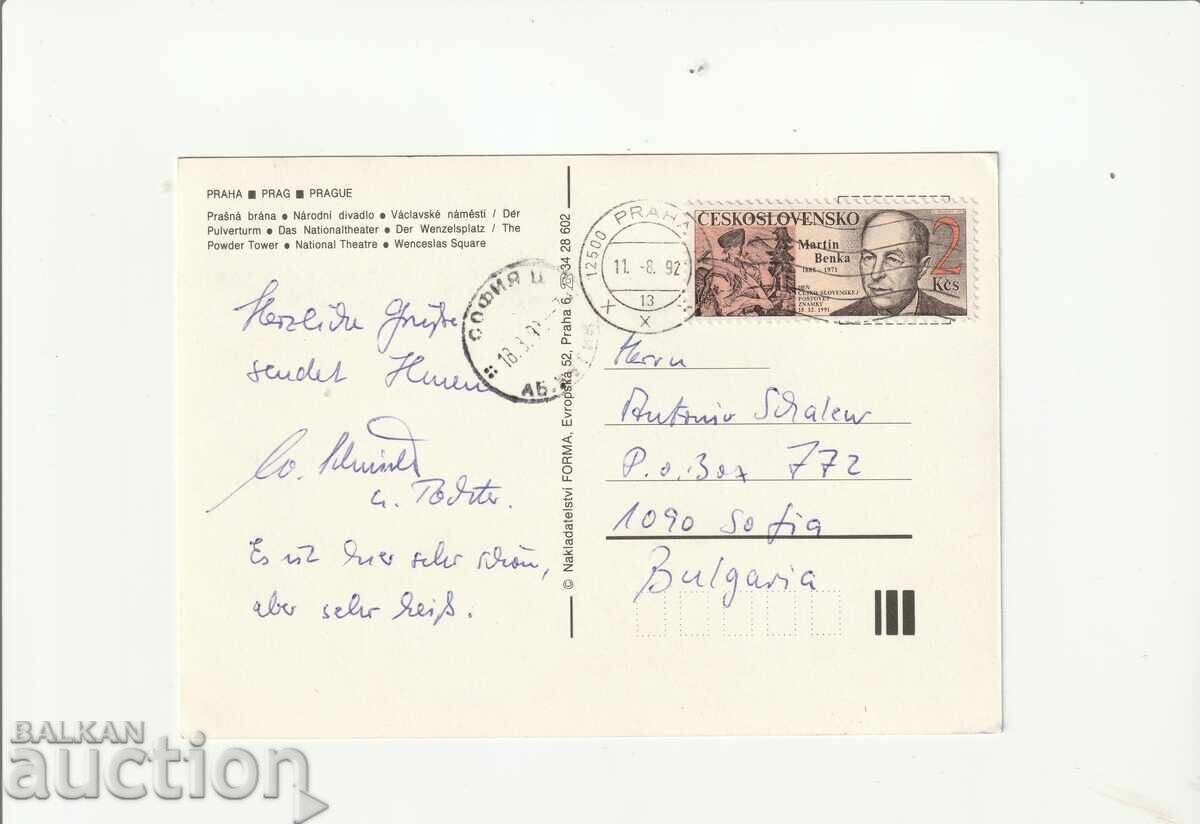 PRAHA ■ PRAG ■ PRAGUE
Prašná brána ● Národní divadlo ● Václavské náměstí / Der
Pulverturm ● Das Nationaltheater ● Der Wenzelsplatz / The
Powder Tower ● National Theatre ● Wenceslas Square
Herzliche Grüße
sendet Ihnen
u. Tochter.
Es ist hier sehr schön,
aber sehr heiß.
© Nakladatelství FORMA, Evropská 52, Praha 6, ☎ 34 28 602
СОФИЯ Ц
18.8.92
12500 PRAHA
11. -8. 92
13
X X
ČESKOSLOVENSKO
Martin
Benka
1888 - 1971
DEN
ČESKO-SLOVENSKEJ
POŠTOVEJ
ZNÁMKY
18. 12. 1991
2
Kčs
Herrn
Antonio Schalew
P.o. Box 772
1090 Sofia
Bulgaria
BALKAN
auction